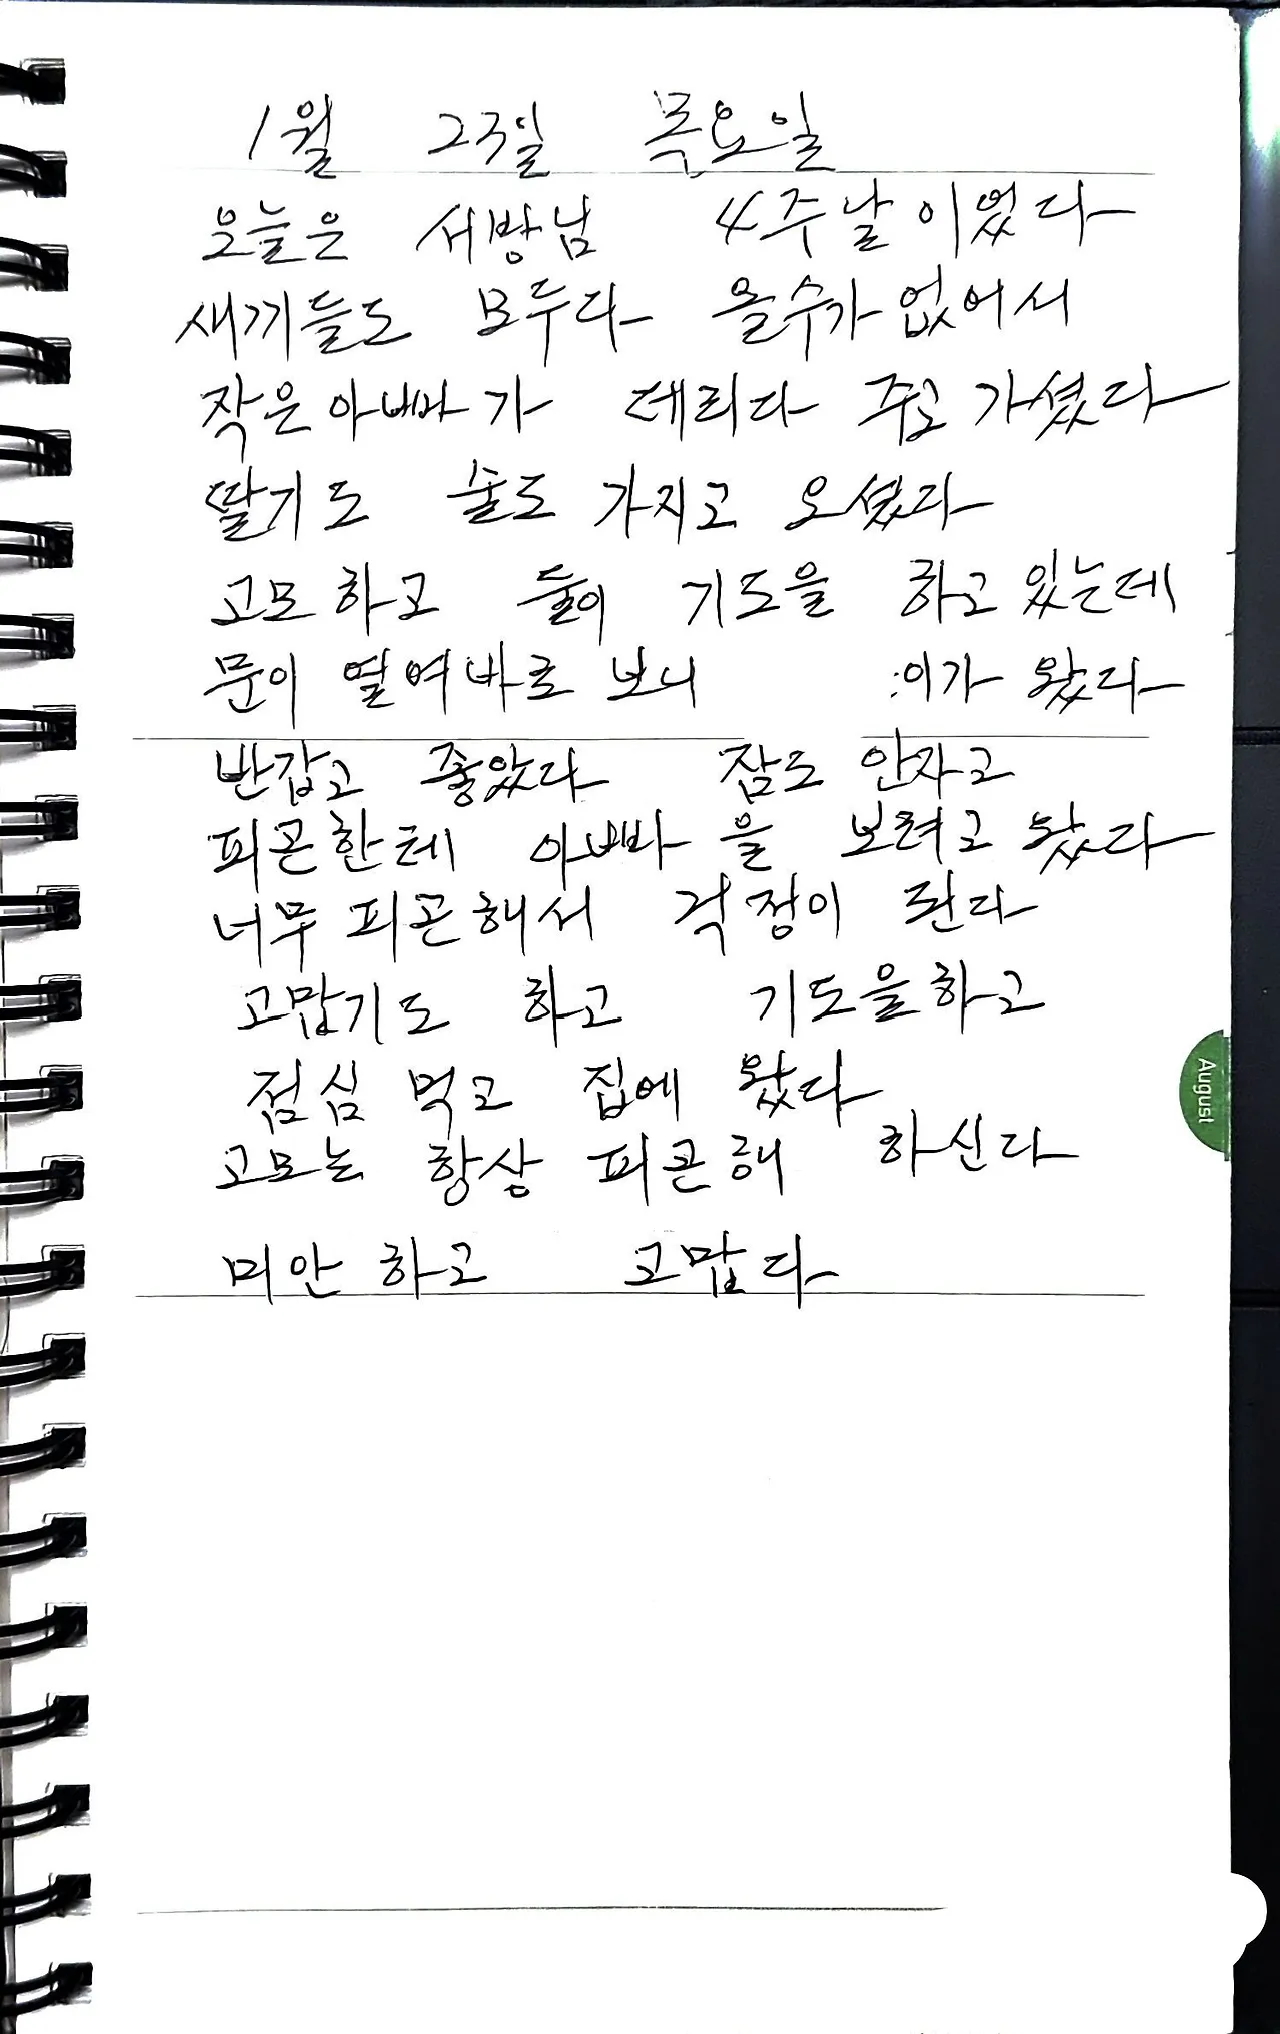 1월 23일 목요일
오늘은 서방님 4주날이었다
새끼들도 모두다 올수가 없어서
작은아빠가 데리다 주고 가셨다
딸기도 술도 가지고 오셨다
고모하고 둘이 기도을 하고 있는데
문이 열여바로 보니 이가 왔다
반갑고 좋았다 잠도 안자고
피곤한테 아빠을 보려고 왔다
너무 피곤해서 걱정이 된다
고맙기도 하고 기도을하고
점심 먹고 집에 왔다
고모는 항상 피곤해 하신다
미안하고 고맙다
August